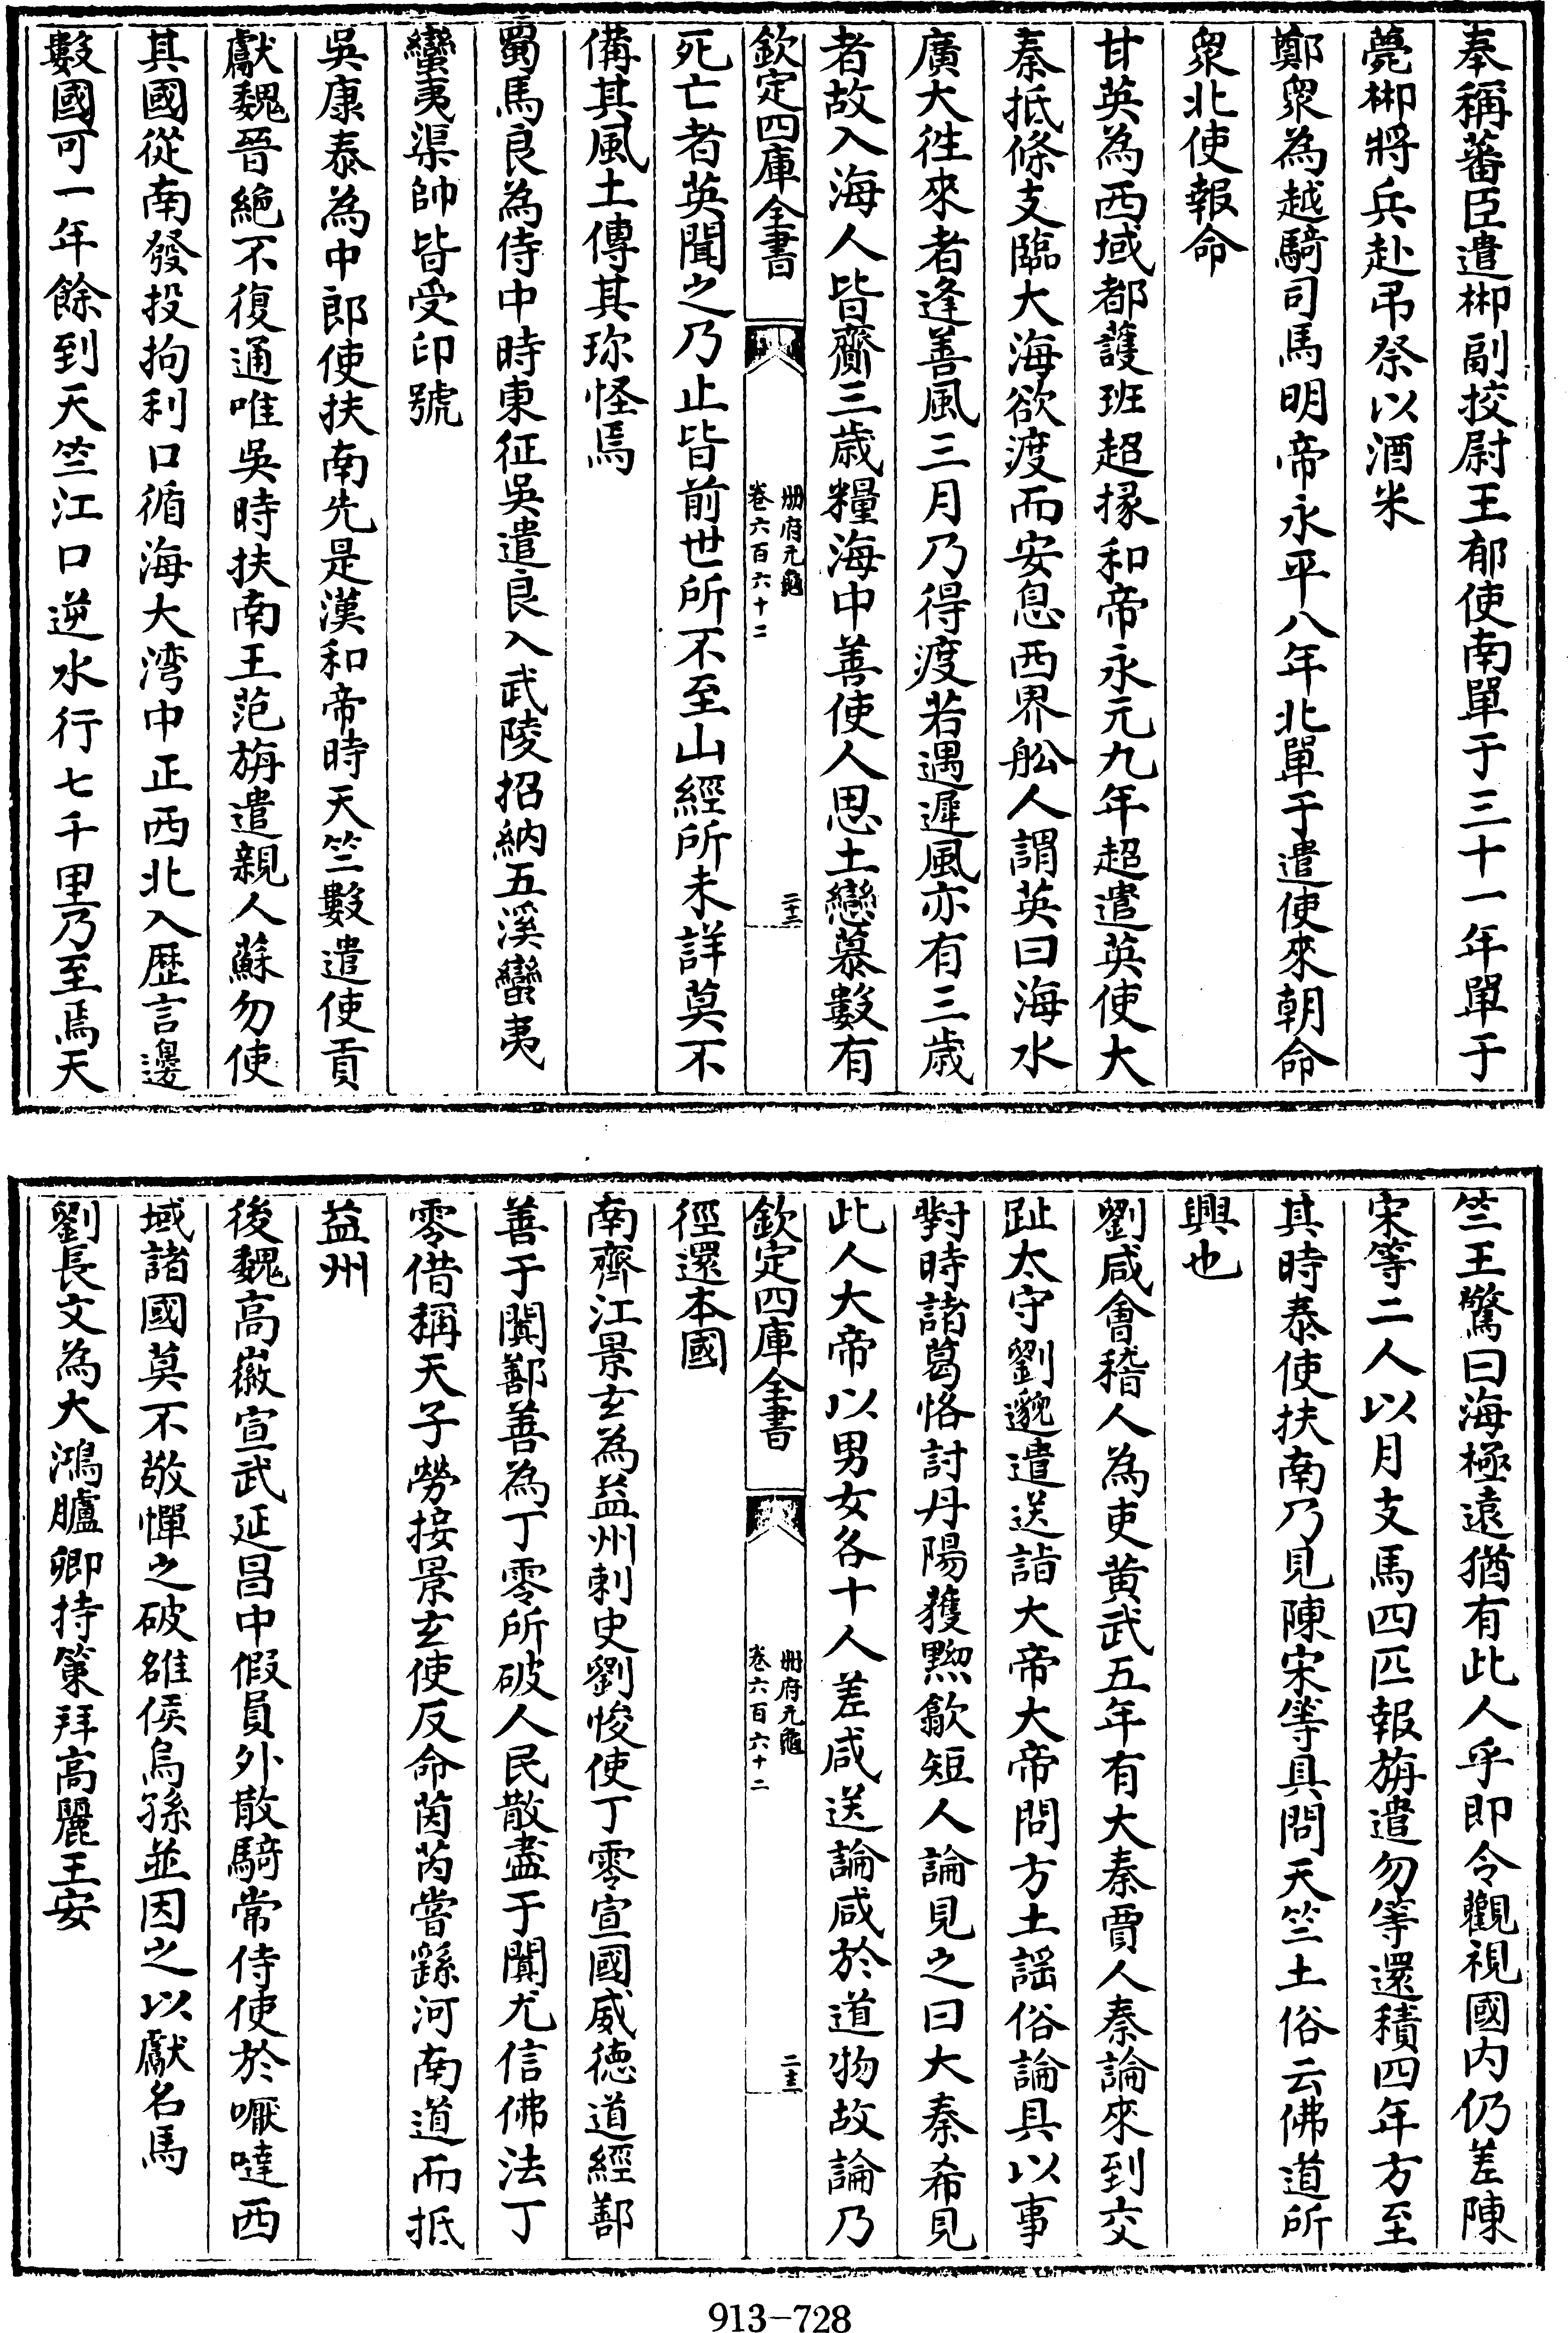 奉稱蕃臣遣郴副挍尉王郁使南單于三十一年單于
薨郴將兵赴弔祭以酒米
鄭衆為越騎司馬明帝永平八年北單于遣使來朝命
衆北使報命
甘英為西域都護班超掾和帝永元九年超遣英使大
秦抵條支臨大海欲渡而安息西界舩人謂英曰海水
廣大徃來者逢善風三月乃得渡若遇遲風亦有三歳
者故入海人皆齎三歳糧海中善使人思土戀慕數有
欽定四庫全書
冊府元龜
卷六百六十二
二十三
死亡者英聞之乃止皆前世所不至山經所未詳莫不
備其風土傳其珍怪焉
蜀馬良為侍中時東征吳遣良入武陵招納五溪蠻夷
蠻夷渠帥皆受印號
吳康泰為中郎使扶南先是漢和帝時天竺數遣使貢
獻魏晉絶不復通唯吳時扶南王范旃遣親人蘇勿使
其國從南發投拘利口循海大湾中正西北入歷言邊
數國可一年餘到天竺江口逆水行七千里乃至焉天
竺王驚曰海極遠猶有此人乎即令觀視國内仍差陳
宋等二人以月支馬四匹報旃遣勿等還積四年方至
其時泰使扶南乃見陳宋等具問天竺土俗云佛道所
興也
劉咸會稽人為吏黄武五年有大秦賈人秦論來到交
趾太守劉邈遣送詣大帝大帝問方土謡俗論具以事
對時諸葛恪討丹陽獲黝歙短人論見之曰大秦希見
此人大帝以男女各十人差咸送論咸於道物故論乃
欽定四庫全書
冊府元龜
卷六百六十二
二十三
徑還本國
南齊江景玄為益州刺史劉悛使丁零宣國威徳道經鄯
善于闐鄯善為丁零所破人民散盡于闐尤信佛法丁
零僭稱天子勞接景玄使反命茵芮嘗繇河南道而抵
益州
後魏高徽宣武延昌中假員外散騎常侍使於嚈噠西
域諸國莫不敬憚之破雒侯烏孫並因之以獻名馬
劉長文為大鴻臚卿持策拜高麗王安
913-728